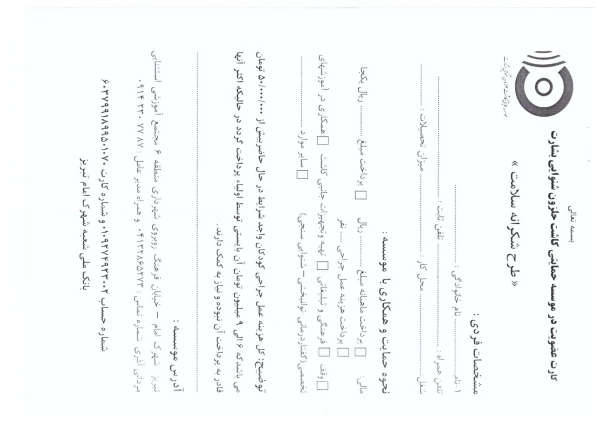 بسمه تعالی
کارت عضویت در موسسه حمایتی کاشت حلزون شنوایی بشارت
« طرح شکرانه سلامت »
مشخصات فردی :
۱- نام ................ نام خانوادگی : ................
تلفن همراه : ................ تلفن ثابت : ................
شغل ................ محل کار : ................ میزان تحصیلات : ................
نحوه حمایت و همکاری با موسسه :
مالی: □ پرداخت ماهیانه مبلغ ........... ریال □ پرداخت مبلغ ........... ریال یکجا
□ پرداخت هزینه عمل جراحی ..... نفر
□ وقف □ فرهنگی و تبلیغاتی □ تهیه وتجهیزات جانبی کاشت □ همکاری در آموزشهای
تخصصی(گفتاردرمانی توانبخشی – شنوایی سنجی) □ سایر موارد ................
توضیح: کل هزینه عمل جراحی کودکان واجد شرایط در حال حاضر بیش از ۵۰/۰۰۰/۰۰۰ تومان
می باشد که ۶ الی ۹ میلیون تومان آن بایستی توسط اولیاء پرداخت گردد در حالیکه اکثر آنها
قادر به پرداخت آن نبوده و نیاز به کمک دارند .
آدرس موسسه :
تبریز شهرک امام – خیابان فرهنگ روبروی شهرداری منطقه ۶ مجتمع آموزشی استثنایی
مردانی آذری شماره تماس : ۰۴۱۳۲۸۶۵۲۷۳ و همراه مدیر عامل : ۰۹۱۴۲۳۰۷۷۸۷
شماره حساب ۰۱۰۹۲۷۶۹۲۳۰۰۲ و شماره کارت ۶۰۳۷۹۹۱۸۹۹۵۰۱۰۷۰
بانک ملی شعبه شهرک امام تبریز